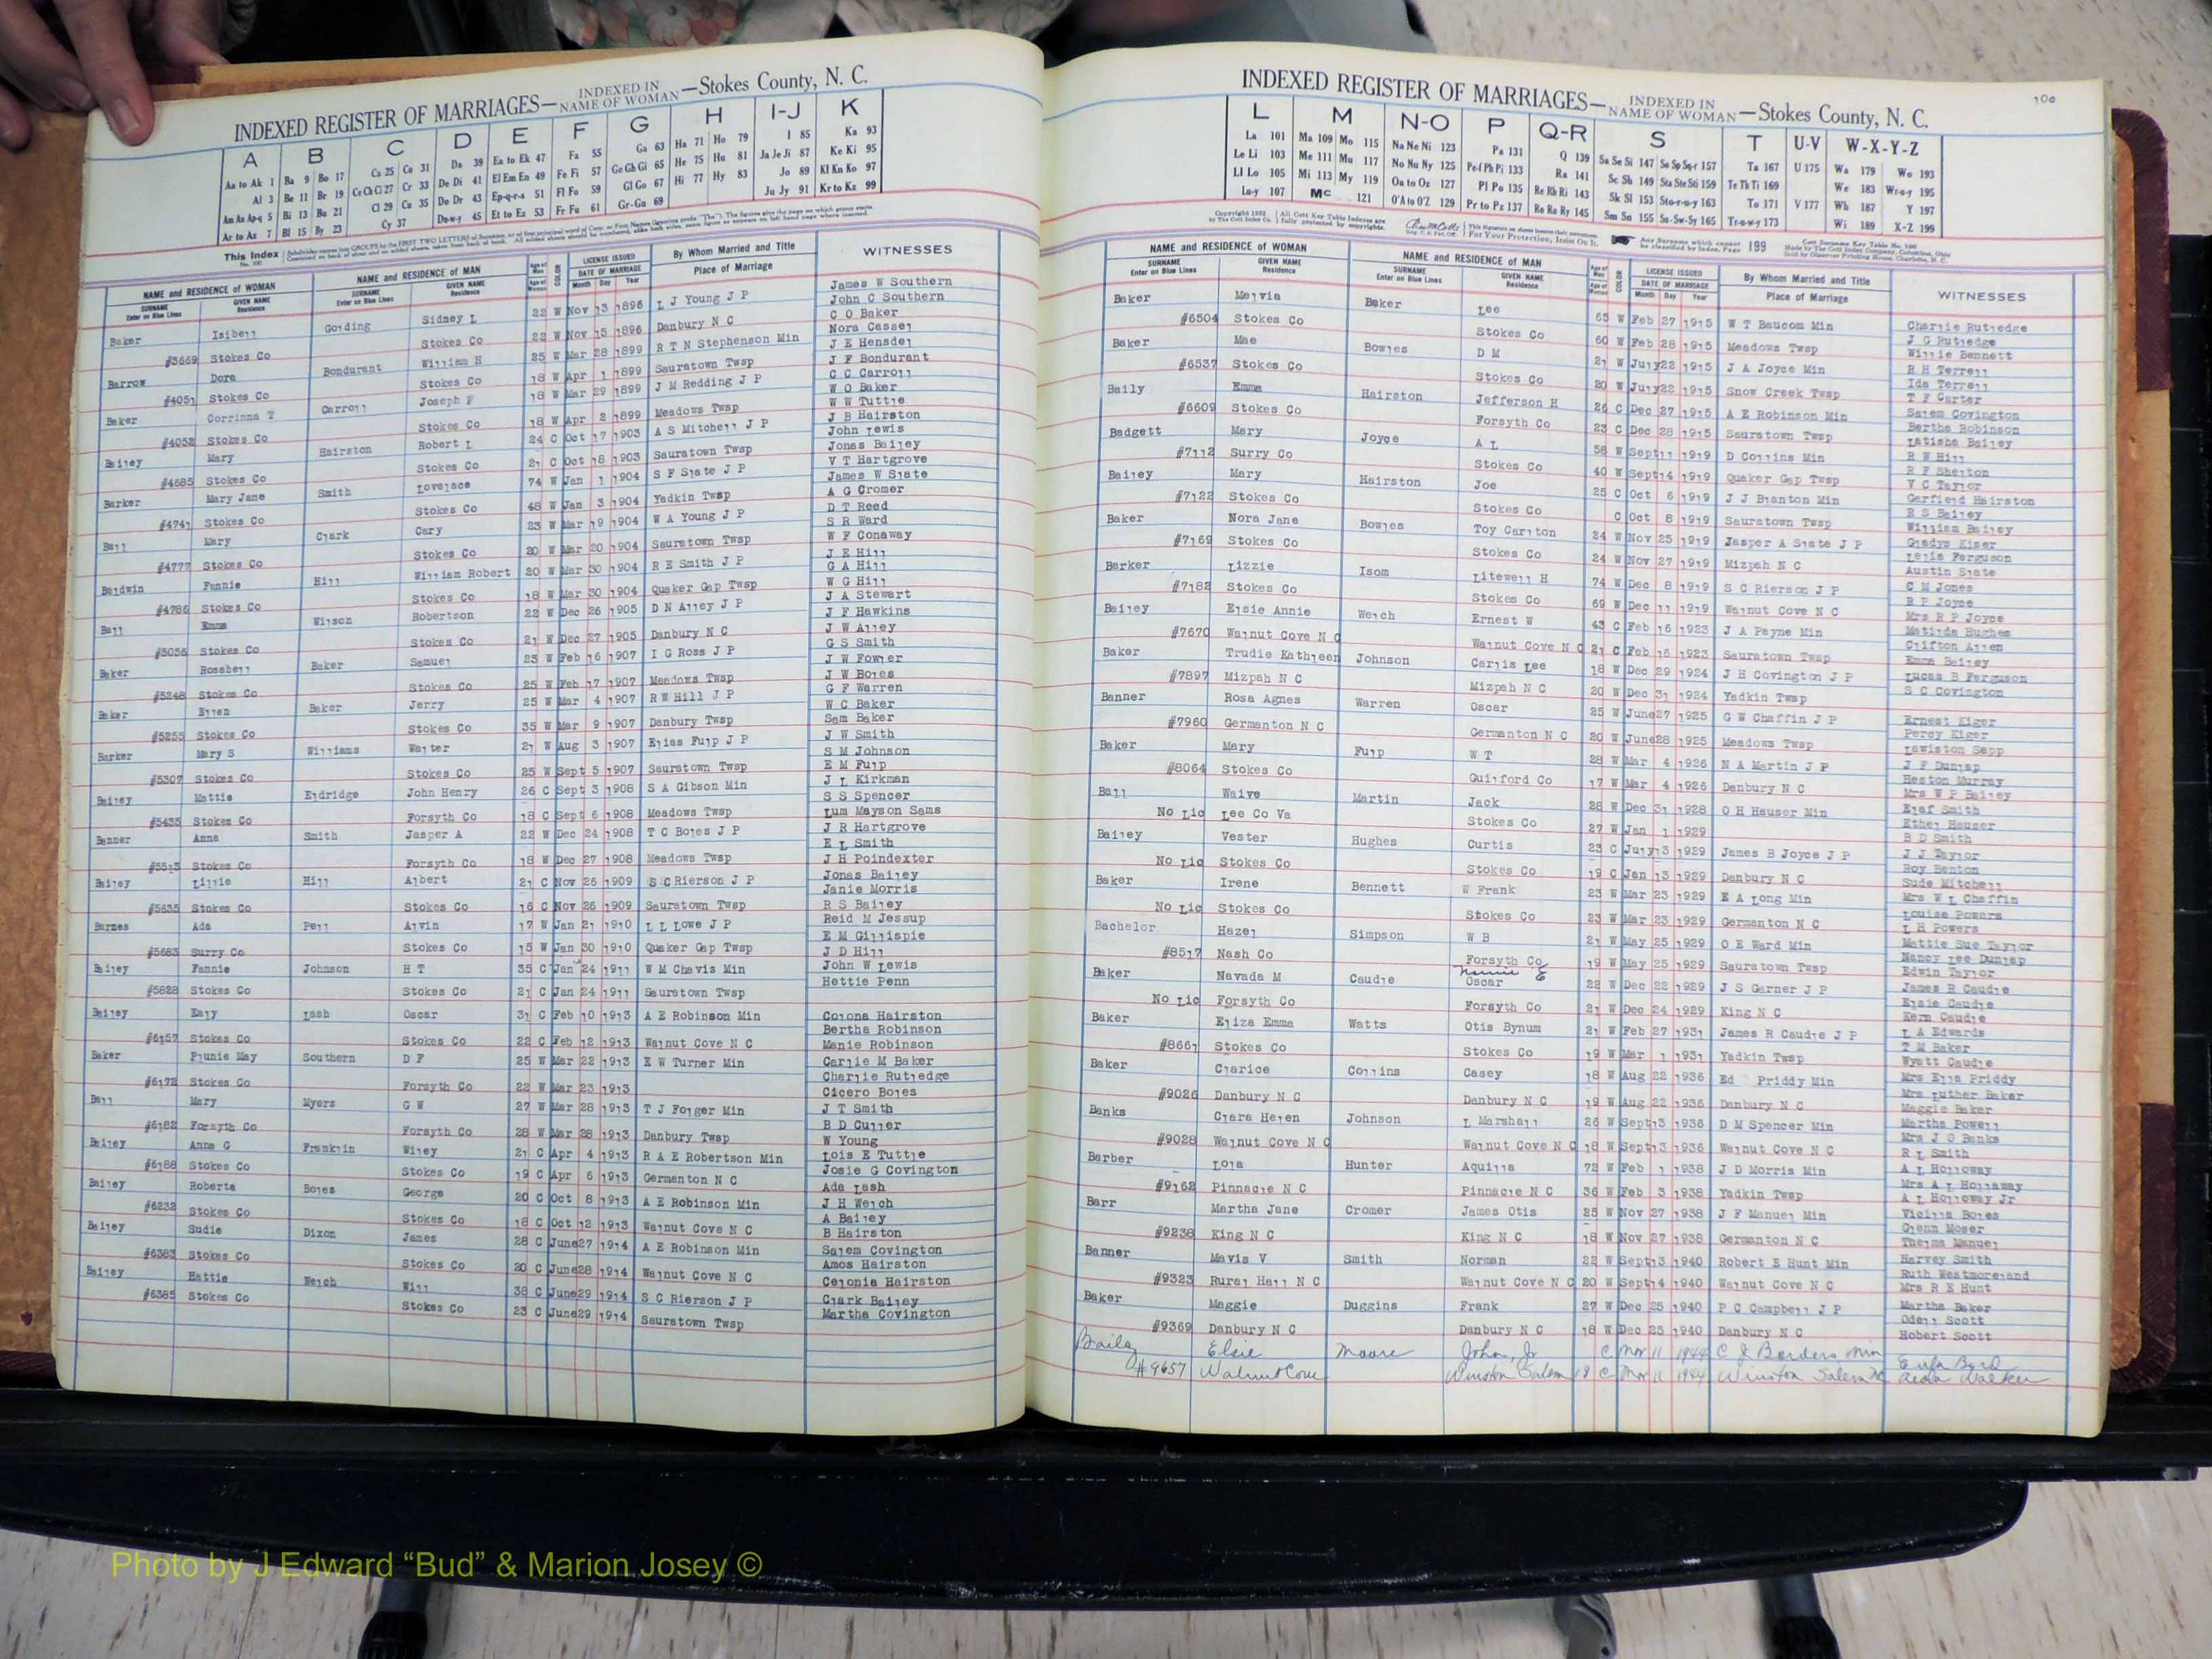 INDEXED REGISTER OF MARRIAGES—INDEXED IN NAME OF WOMAN—Stokes County, N. C.
A B C D E F G H I-J K
Aa to Ak 1 Ba 9 Bo 17 Ca 25 Co 31 Da 39 Ea to Ek 47 Fa 55 Ga 63 Ha 71 Ho 79 I 85 Ka 93
Al 3 Be 11 Br 19 Ce Ch Ci 27 Cr 33 De Di 41 El Em En 49 Fe Fi 57 Ge Gh Gi 65 He 75 Hu 81 Ja Je Ji 87 Ke Ki 95
Am An Ap-q 5 Bi 13 Bu 21 Cl 29 Cu 35 Do Dr 43 Ep-q-r-s 51 Fl Fo 59 Gl Go 67 Hi 77 Hy 83 Jo 89 Kl Kn Ko 97
Ar to Az 7 Bl 15 By 23 Cy 37 Du-w-y 45 Et to Ez 53 Fr Fu 61 Gr-Gu 69 Ju Jy 91 Kr to Kz 99
NAME and RESIDENCE OF WOMAN NAME and RESIDENCE OF MAN LICENSE ISSUED By Whom Married and Title WITNESSES
SURNAME Enter on Blue Lines GIVEN NAME Residence SURNAME Enter on Blue Lines GIVEN NAME Residence COLOR DATE OF MARRIAGE Month Day Year Place of Marriage
Baker Isibell Golding Sidney L 22 W Nov 13 1896 L J Young J P James W Southern
John C Southern
#3669 Stokes Co Stokes Co 22 W Nov 15 1896 Danbury N C C O Baker
Barrow Dora Bondurant William H 25 W Mar 28 1899 R T N Stephenson Min Nora Cassel
J E Hensdel
#4051 Stokes Co Stokes Co 18 W Apr 1 1899 Sauratown Twsp J F Bondurant
Baker Corrinna T Carroll Joseph F 18 W Mar 29 1899 J M Redding J P C C Carroll
W O Baker
#4052 Stokes Co Stokes Co 18 W Apr 2 1899 Meadows Twsp W W Tuttle
Bailey Mary Hairston Robert L 24 C Oct 17 1903 A S Mitchell J P J B Hairston
John Lewis
#4685 Stokes Co Stokes Co 21 C Oct 18 1903 Sauratown Twsp Jonas Bailey
Barker Mary Jane Smith Lovelace 74 W Jan 1 1904 S F Slate J P V T Hartgrove
James W Slate
#4741 Stokes Co Stokes Co 48 W Jan 3 1904 Yadkin Twsp A G Cromer
Ball Mary Clark Cary 23 W Mar 19 1904 W A Young J P D T Reed
S R Ward
#4777 Stokes Co Stokes Co 20 W Mar 20 1904 Sauratown Twsp W F Conaway
Baldwin Fannie Hill William Robert 20 W Mar 30 1904 R E Smith J P J E Hill
G A Hill
#4786 Stokes Co Stokes Co 18 W Mar 30 1904 Quaker Gap Twsp W G Hill
Ball Emma Wilson Robertson 22 W Dec 26 1905 D N Alley J P J A Stewart
J F Hawkins
#5056 Stokes Co Stokes Co 21 W Dec 27 1905 Danbury N C J W Alley
Baker Rosabell Baker Samuel 23 W Feb 16 1907 I G Ross J P G S Smith
J W Fowler
#5248 Stokes Co Stokes Co 25 W Feb 17 1907 Meadows Twsp J W Boles
Baker Ellen Baker Jerry 25 W Mar 4 1907 R W Hill J P G F Warren
W C Baker
#5255 Stokes Co Stokes Co 35 W Mar 9 1907 Danbury Twsp Sam Baker
Barker Mary S Williams Walter 21 W Aug 3 1907 Elias Fulp J P J W Smith
S M Johnson
#5307 Stokes Co Stokes Co 25 W Sept 5 1907 Sauratown Twsp E M Fulp
Bailey Mattie Eldridge John Henry 26 C Sept 3 1908 S A Gibson Min J L Kirkman
S S Spencer
#5435 Stokes Co Forsyth Co 18 C Sept 6 1908 Meadows Twsp Lum Mayson Sams
Banner Anna Smith Jasper A 22 W Dec 24 1908 T C Boles J P J R Hartgrove
E L Smith
#5513 Stokes Co Forsyth Co 18 W Dec 27 1908 Meadows Twsp J H Poindexter
Bailey Lillie Hill Albert 21 C Nov 26 1909 S C Rierson J P Jonas Bailey
Janie Morris
#5635 Stokes Co Stokes Co 16 C Nov 26 1909 Sauratown Twsp R S Bailey
Barnes Ada Pell Alvin 17 W Jan 21 1910 L L Lowe J P Reid M Jessup
E M Gillispie
#5683 Surry Co Stokes Co 15 W Jan 30 1910 Quaker Gap Twsp J D Hill
Bailey Fannie Johnson H T 35 C Jan 24 1911 W M Chavis Min John W Lewis
Hettie Penn
#5828 Stokes Co Stokes Co 21 C Jan 24 1911 Sauratown Twsp
Bailey Ealy Lash Oscar 31 C Feb 10 1913 A E Robinson Min Colona Hairston
Bertha Robinson
#6157 Stokes Co Stokes Co 22 C Feb 12 1913 Walnut Cove N C Manie Robinson
Baker Plunie May Southern D F 25 W Mar 22 1913 E W Turner Min Carlie M Baker
Charlie Rutledge
#6172 Stokes Co Forsyth Co 22 W Mar 23 1913 Cicero Boles
Ball Mary Myers G W 27 W Mar 28 1913 T J Folger Min J T Smith
B D Culler
#6182 Forsyth Co Forsyth Co 28 W Mar 28 1913 Danbury Twsp W Young
Bailey Anna G Franklin Wiley 21 C Apr 4 1913 R A E Robertson Min Lois E Tuttle
Josie G Covington
#6188 Stokes Co Stokes Co 19 C Apr 6 1913 Germanton N C Ada Lash
Bailey Roberta Boles George 20 C Oct 8 1913 A E Robinson Min J H Welch
A Bailey
#6232 Stokes Co Stokes Co 18 C Oct 12 1913 Walnut Cove N C B Hairston
Bailey Sudie Dixon James 28 C June 27 1914 A E Robinson Min Salem Covington
Amos Hairston
#6383 Stokes Co Stokes Co 20 C June 28 1914 Walnut Cove N C Celonia Hairston
Bailey Hattie Welch Will 38 C June 29 1914 S C Rierson J P Clark Bailey
Martha Covington
#6385 Stokes Co Stokes Co 23 C June 29 1914 Sauratown Twsp
INDEXED REGISTER OF MARRIAGES—INDEXED IN NAME OF WOMAN—Stokes County, N. C.
100
L M N-O P Q-R S T U-V W-X-Y-Z
La 101 Ma 109 Mo 115 Na Ne Ni 123 Pa 131 Q 139 Sa Se Si 147 So Sp Sq-r 157 Ta 167 U 175 Wa 179 Wo 193
Le Li 103 Me 111 Mu 117 No Nu Ny 125 Pe-f Ph Pi 133 Ra 141 Sc Sh 149 Sta Ste Sti 159 Te Th Ti 169 We 183 Wr-u-y 195
Ll Lo 105 Mi 113 My 119 Oa to Oz 127 Pl Po 135 Re Rh Ri 143 Sk Sl 153 Sto-r-u-y 163 To 171 V 177 Wh 187 Y 197
Lu-y 107 Mc 121 O'A to O'Z 129 Pr to Pz 137 Ro Ru Ry 145 Sm Sn 155 Su-Sw-Sy 165 Tr-u-w-y 173 Wi 189 X-Z 199
NAME and RESIDENCE OF WOMAN NAME and RESIDENCE OF MAN LICENSE ISSUED By Whom Married and Title WITNESSES
SURNAME Enter on Blue Lines GIVEN NAME Residence SURNAME Enter on Blue Lines GIVEN NAME Residence COLOR DATE OF MARRIAGE Month Day Year Place of Marriage
Baker Melvia Baker Lee 65 W Feb 27 1915 W T Baucom Min Charlie Rutledge
J G Rutledge
#6504 Stokes Co Stokes Co 60 W Feb 28 1915 Meadows Twsp Willie Bennett
Baker Mae Bowles D M 21 W July 22 1915 J A Joyce Min R H Terrell
Ida Terrell
#6537 Stokes Co Stokes Co 20 W July 22 1915 Snow Creek Twsp T F Carter
Baily Emma Hairston Jefferson H 26 C Dec 27 1915 A E Robinson Min Salem Covington
Bertha Robinson
#6609 Stokes Co Forsyth Co 23 C Dec 28 1915 Sauratown Twsp Latisha Bailey
Badgett Mary Joyce A L 56 W Sept 11 1919 D Collins Min R W Hill
R F Shelton
#7112 Surry Co Stokes Co 40 W Sept 14 1919 Quaker Gap Twsp V C Taylor
Bailey Mary Hairston Joe 25 C Oct 6 1919 J J Blanton Min Garfield Hairston
R S Bailey
#7122 Stokes Co Stokes Co C Oct 8 1919 Sauratown Twsp William Bailey
Baker Nora Jane Bowles Toy Carlton 24 W Nov 25 1919 Jasper A Slate J P Gladys Kiser
Lelia Ferguson
#7169 Stokes Co Stokes Co 24 W Nov 27 1919 Mizpah N C Austin Slate
Barker Lizzie Isom Litewell H 74 W Dec 8 1919 S C Rierson J P C M Jones
R P Joyce
#7182 Stokes Co Stokes Co 69 W Dec 11 1919 Walnut Cove N C Mrs R P Joyce
Bailey Elsie Annie Welch Ernest W 43 C Feb 16 1923 J A Payne Min Matilda Hughes
Clifton Allen
#7670 Walnut Cove N C Walnut Cove N C 21 C Feb 16 1923 Sauratown Twsp Emma Bailey
Baker Trudie Kathleen Johnson Carlis Lee 18 W Dec 29 1924 J H Covington J P Lucas B Ferguson
S C Covington
#7897 Mizpah N C Mizpah N C 20 W Dec 31 1924 Yadkin Twsp
Banner Rosa Agnes Warren Oscar 25 W June 27 1925 G W Chaffin J P Ernest Kiger
Percy Kiger
#7960 Germanton N C Germanton N C 20 W June 28 1925 Meadows Twsp Lawiston Sapp
Baker Mary Fulp W T 28 W Mar 4 1926 N A Martin J P J F Dunlap
Heston Murray
#8064 Stokes Co Guilford Co 17 W Mar 4 1926 Danbury N C Mrs W P Bailey
Ball Waive Martin Jack 28 W Dec 31 1928 O H Hauser Min Elaf Smith
Ethel Hauser
No Lic Lee Co Va Stokes Co 27 W Jan 1 1929 B D Smith
Bailey Vester Hughes Curtis 23 C July 13 1929 James B Joyce J P J J Taylor
Roy Benton
No Lic Stokes Co Stokes Co 19 C Jan 13 1929 Danbury N C Sude Mitchell
Baker Irene Bennett W Frank 23 W Mar 23 1929 E A Long Min Mrs W L Chaffin
Louise Powers
No Lic Stokes Co Stokes Co 23 W Mar 23 1929 Germanton N C L H Powers
Bachelor Hazel Simpson W B 21 W May 25 1929 O E Ward Min Mattie Sue Taylor
Nancy Lee Dunlap
#8517 Nash Co Forsyth Co 19 W May 25 1929 Sauratown Twsp Edwin Taylor
Baker Navada M Caudle Oscar 22 W Dec 22 1929 J S Garner J P James R Caudle
Elsie Caudle
No Lic Forsyth Co Forsyth Co 21 W Dec 24 1929 King N C Kern Caudle
Baker Eliza Emma Watts Otis Bynum 21 W Feb 27 1931 James R Caudle J P L A Edwards
T M Baker
#8661 Stokes Co Stokes Co 19 W Mar 1 1931 Yadkin Twsp Wyatt Caudle
Baker Clarice Collins Casey 18 W Aug 22 1936 Ed Priddy Min Mrs Ella Priddy
Mrs Luther Baker
#9026 Danbury N C Danbury N C 19 W Aug 22 1936 Danbury N C Maggie Baker
Banks Clara Helen Johnson L Marshall 26 W Sept 13 1936 D M Spencer Min Martha Powell
Mrs J O Banks
#9028 Walnut Cove N C Walnut Cove N C 18 W Sept 13 1936 Walnut Cove N C R L Smith
Barber Lola Hunter Aquilla 72 W Feb 1 1938 J D Morris Min A L Holloway
Mrs A L Hollaway
#9162 Pinnacle N C Pinnacle N C 36 W Feb 3 1938 Yadkin Twsp A L Holloway Jr
Barr Martha Jane Cromer James Otis 25 W Nov 27 1938 J F Manuel Min Vicilla Boles
Glenn Moser
#9238 King N C King N C 18 W Nov 27 1938 Germanton N C Thelma Manuel
Banner Mavis V Smith Norman 22 W Sept 13 1940 Robert E Hunt Min Harvey Smith
Ruth Westmoreland
#9323 Rural Hall N C Walnut Cove N C 20 W Sept 14 1940 Walnut Cove N C Mrs R E Hunt
Baker Maggie Duggins Frank 27 W Dec 25 1940 P C Campbell J P Martha Baker
Odell Scott
#9369 Danbury N C Danbury N C 18 W Dec 25 1940 Danbury N C Hobert Scott
Baily Elsie Moore John, Jr C Mar 11 1944 C J Borders Min
#9657 Walnut Cove Winston Salem 18 C Mar 11 1944 Winston Salem NC
Photo by J Edward “Bud” & Marion Josey ©